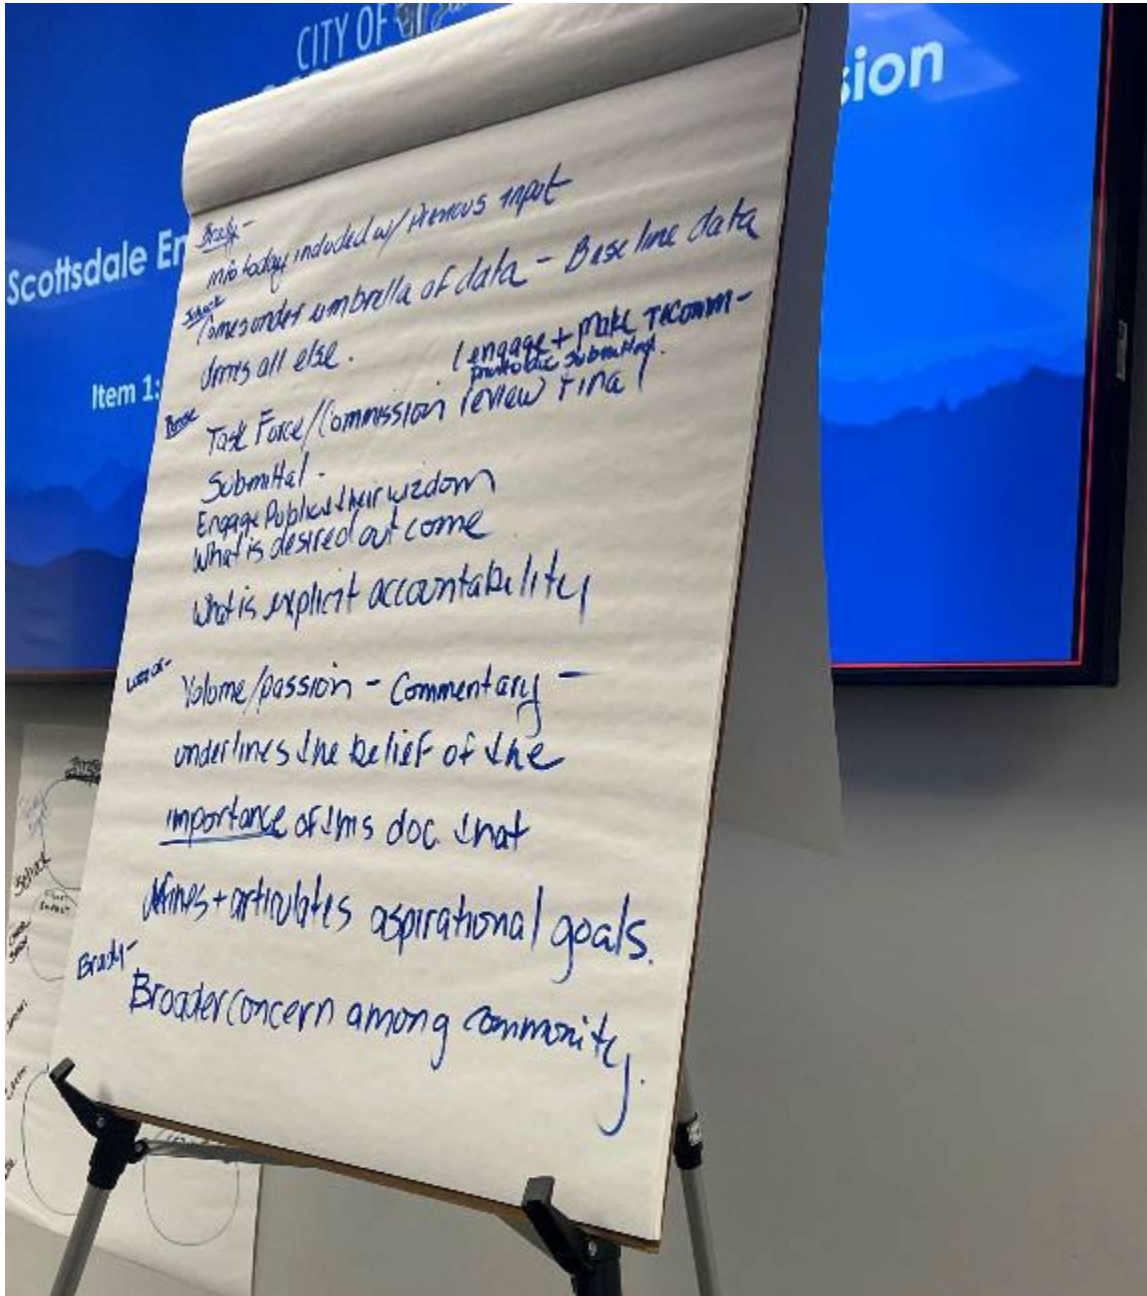 CITY OF
sion
Scottsdale En
Item 1:
Brady-
info today included w/ Previous input
Schuck
Comes under umbrella of data - Baseline data
drives all else.
(engage + make recomm-
submittal.
Task Force/Commission review final
Submittal.
Engage Public & their wizdom
What is desired out come
What is explicit accountability
Volume/passion - Commentary -
underlines the belief of the
importance of this doc. that
defines + articulates aspirational goals.
Brady-
Broader concern among community.
Schuck